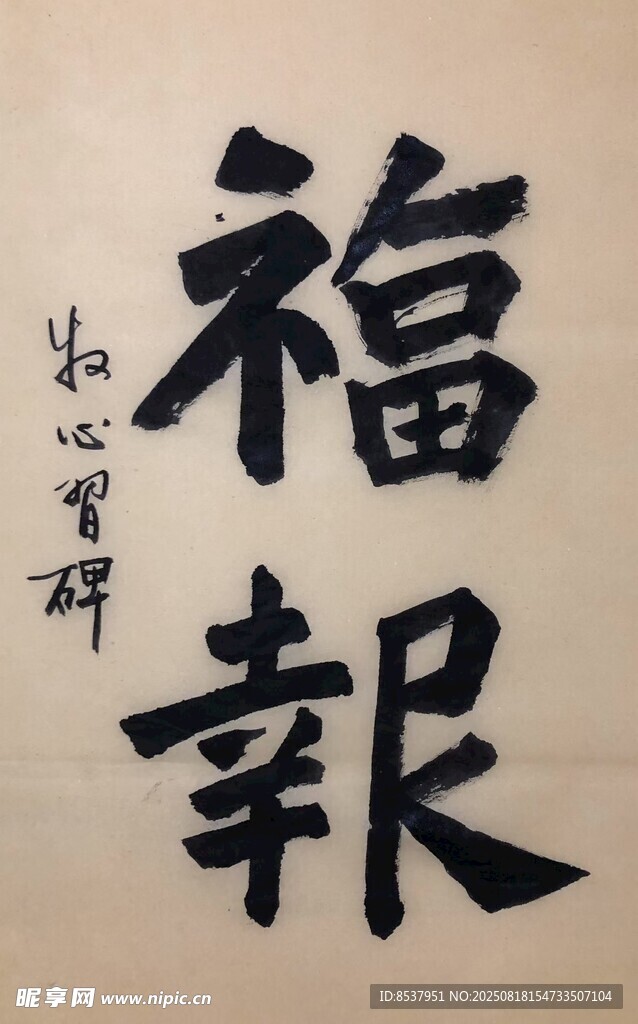 福報
牧心習碑
昵享网 www.nipic.cn
ID:8537951 NO:20250818154733507104